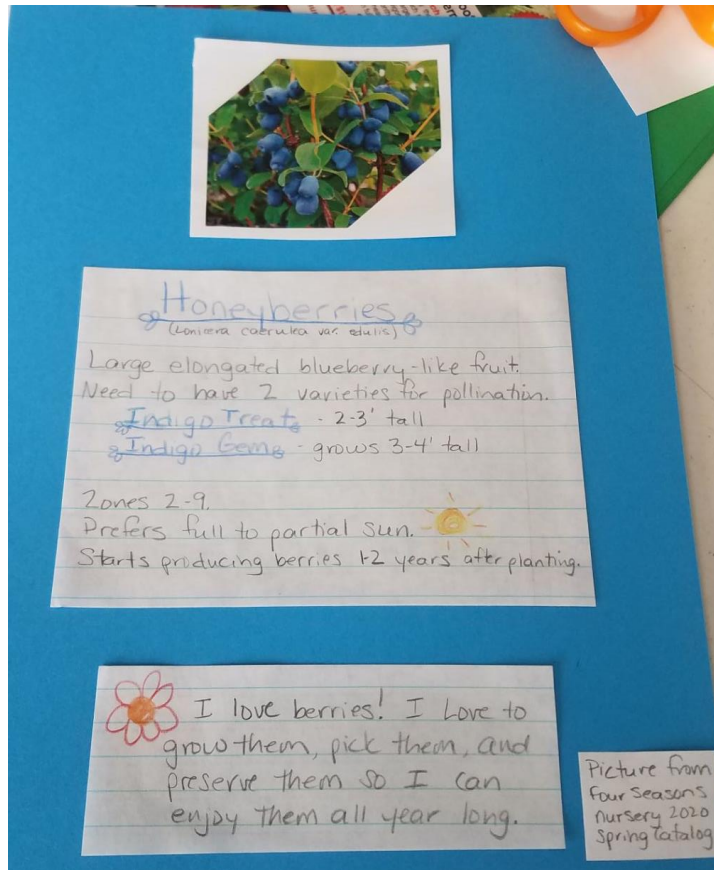 Honeyberries
(Lonicera caerulea var. edulis)
Large elongated blueberry-like fruit.
Need to have 2 varieties for pollination.
Indigo Treat - 2-3' tall
Indigo Gem - grows 3-4' tall
Zones 2-9.
Prefers full to partial sun.
Starts producing berries 1-2 years after planting.
I love berries! I Love to
grow them, pick them, and
preserve them so I can
enjoy them all year long.
Picture from
four seasons
nursery 2020
spring catalog